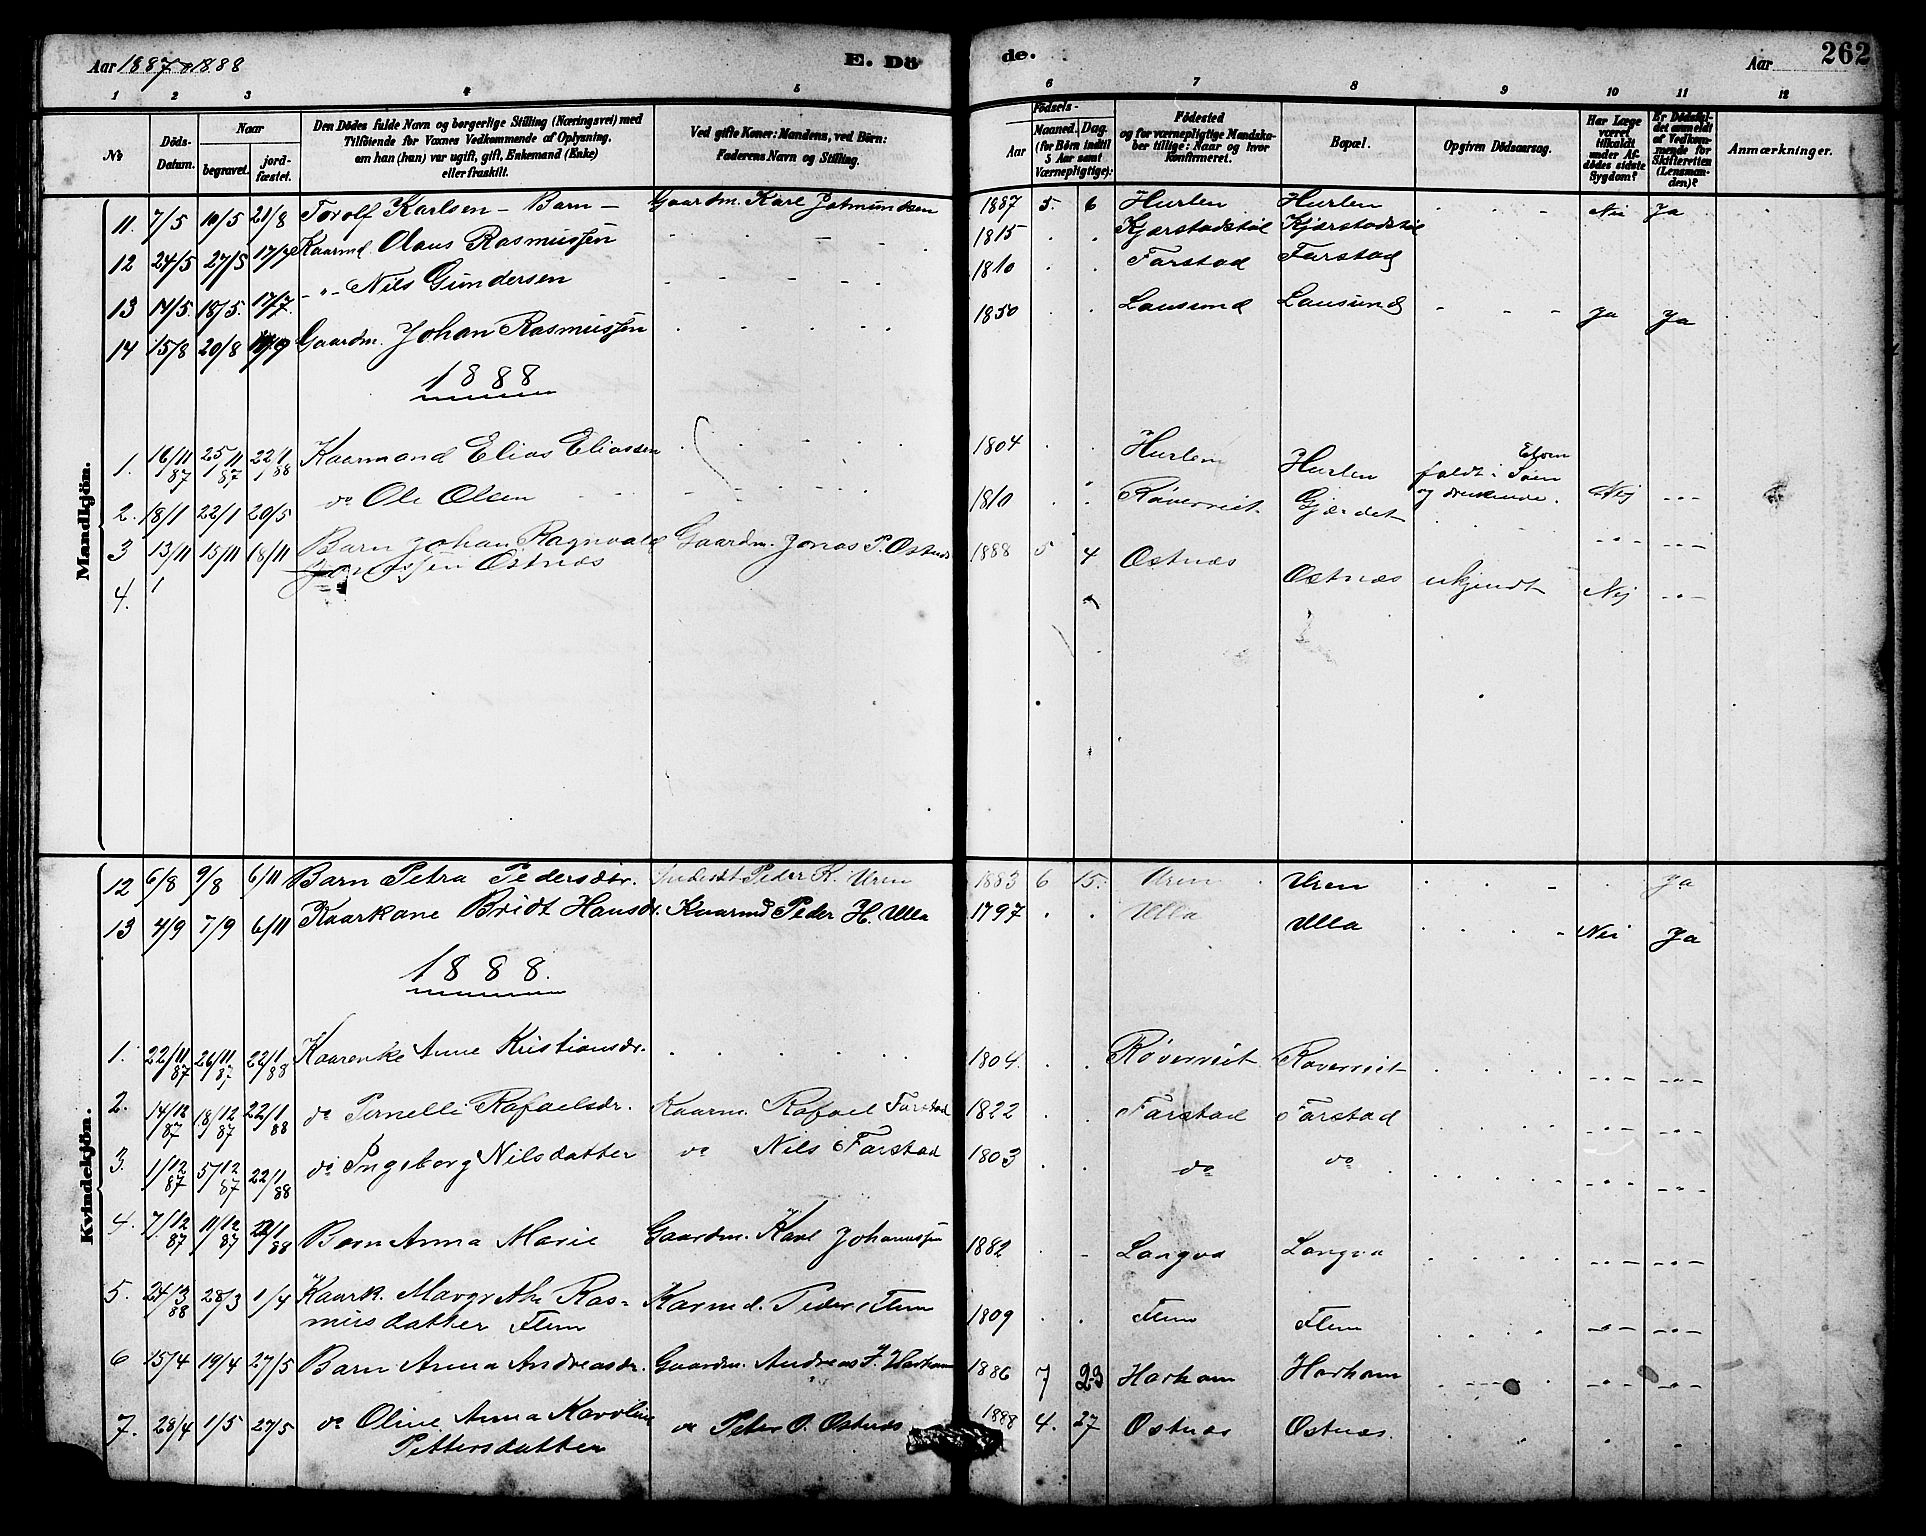 Aar 1887 o 1888
E. Dö
de.
Aar
262
1 2 3 4 5 6 7 8 9 10 11 12
No
Döds-Datum.
Naar
begravet.
jord-fæstet.
Den Dödes fulde Navn og borgerlige Stilling (Næringsvei) med
Tilföiende for Voxnes Vedkommende af Oplysning,
om han (hun) var ugift, gift, Enkemand (Enke)
eller fraskilt.
Ved gifte Koner: Mandens, ved Börn:
Faderens Navn og Stilling.
Födsels-
Aar
Maaned. Dag.
(for Börn indtil
5 Aar samt
Værnepligtige):
Födested
og for værnepligtige Mandska-
ber tillige: Naar og hvor
konfirmeret.
Bopæl.
Opgiven Dödsaarsag.
Har Læge
været
tilkaldt
under Af-
dödes sidste
Sygdom?
Er Dödsfal-
det anmeldt
af Vedkom-
mende for
Skifteretten
(Lensman-
den)?
Anmærkninger.
Mandkjön.
11. 7/5 10/5 21/8 Torolf Karlsen - Barn - Gaardm. Karl 1887 5. 6 Hurlen Hurlen Nei Ja
12 24/5 27/5 17/7 Kaarmd. Olaus Rasmussen 1815 Kjærstadstøl Kjærstadstøl
13 14/5 18/5. 17/7. -"- Nils Gundersen 1810 Farstad Farstad
14 15/8 20/8 Gaardm. Johan Rasmussen 1850 Lausund Lausund Ja Ja
1888
1. 16/11 87 25/11 87 22/1 88 Kaarmand Elias Eliassen 1804 Hurlen Hurlen faldt i Elven
og druknede. Nej -"-
2. 18/1 22/1 20/5 do Ole Olsen 1810 Røvernit Gjærdet -"- -"-
3 13/11 15/11 18/11 Barn Johan Ragnvald Gaardm. Jonas P. Østnæs 1888 5 4 Østnæs Østnæs ukjendt Nej -"-
Østnæs
4.
Kvindekjön.
12 6/8 9/8 6/11 Barn Petra Pedersdtr. Inderst Peder K. Uren 1883 6 15. Uren Uren Ja
13 4/9 7/9 6/11 Kaarkone Bridt Hansdr. Kaarmd Peder H. Ulla 1797 Ulla Ulla Nei Ja
1888.
1. 22/11 87 26/11 87 22/1 88 Kaarenke Anne Kristiansdr. 1804. Røvernit Røvernit -"- -"-
2. 14/12 87 18/12 87 22/1 88 do Pernelle Rafaelsdr. Kaarm. Rafael Farstad 1822 Farstad Farstad -"- -"-
3. 1/12 87 5/12 87 22/1 88 do Ingeborg Nilsdatter do Nils Farstad 1803 do do -"- -"-
4. 7/12 87 11/12 87 22/1 88 Barn Anna Marie Gaardm. Karl Johannssen 1882 Longva Longva -"- -"-
5. 24/3 88 28/3 1/4 Kaark. Margrethe Ras- Karmd. Peder Flem 1809 Flem Flem -"- -"-
musdatter Flem
6 15/4 19/4 27/5 Barn Anna Andreasdr. Gaardm. Andreas J. Harham 1886 7 23 Harham Harham -"- -"-
7. 28/4 1/5 27/5 do Oline Anna Karoline do Peter O. Østnæs 1888 4. 27 Østnæs Østnæs.
Pettersdatter